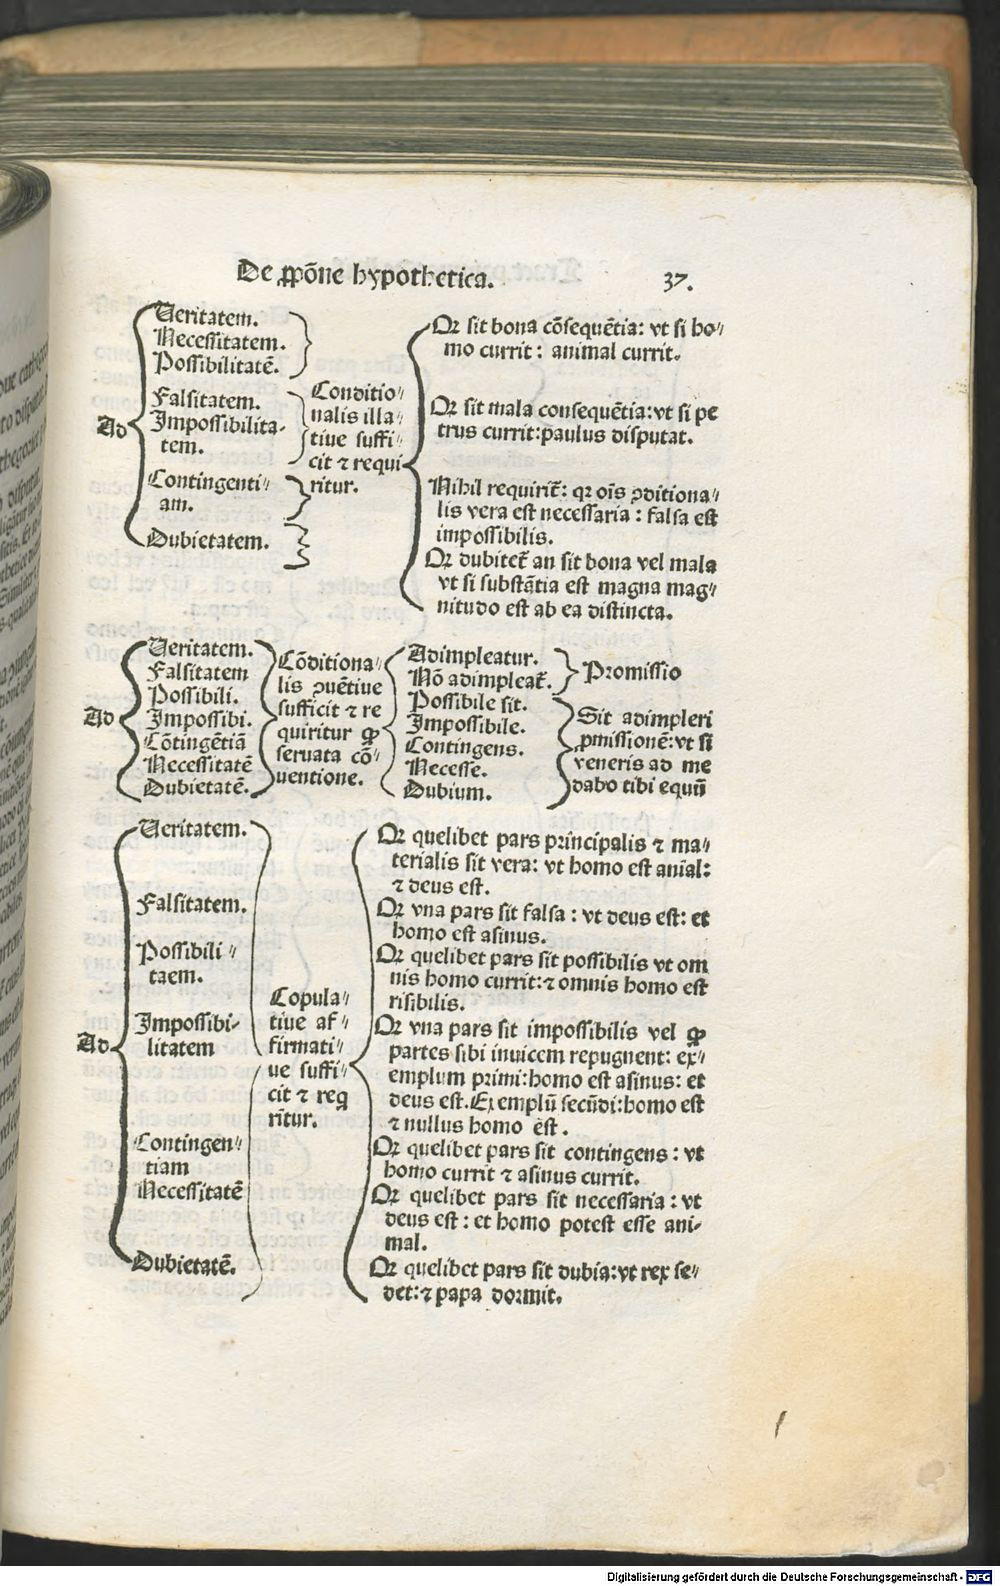 De ꝓpōne hypothetica. 37.
Ad
Veritatem.
Necessitatem.
Possibilitatē.
Falsitatem.
Impossibilita-
tem.
Contingenti-
am.
Dubietatem.
Conditio-
nalis illa-
tiue suffi-
cit ⁊ requi
ritur.
Qꝛ sit bona cōsequētia: vt si ho-
mo currit: animal currit.
Qꝛ sit mala consequētia: vt si pe
trus currit: paulus disputat.
Nihil requirit̄: qꝛ oīs ꝯditiona-
lis vera est necessaria: falsa est
impossibilis.
Qꝛ dubitet̄ an sit bona vel mala
vt si substātia est magna mag-
nitudo est ab ea distincta.
Ad
Veritatem.
Falsitatem
Possibili.
Impossibi.
Cōtingētiā
Necessitatē
Dubietatē.
Cōditiona-
lis ꝯuētiue
sufficit ⁊ re
quiritur ꝙ
seruata cō-
uentione.
Adimpleatur.
Nō adimpleat̄.
Possibile sit.
Impossibile.
Contingens.
Necesse.
Dubium.
Promissio
Sit adimpleri
ꝓmissionē: vt si
veneris ad me
dabo tibi equū
Ad
Veritatem.
Falsitatem.
Possibili-
taem.
Impossibi-
litatem
Contingen-
tiam
Necessitatē
Dubietatē.
Copula-
tiue af-
firmati-
ue suffi-
cit ⁊ req
rītur.
Qꝛ quelibet pars principalis ⁊ ma-
terialis sit vera: vt homo est anīal:
⁊ deus est.
Qꝛ vna pars sit falsa: vt deus est: et
homo est asinus.
Qꝛ quelibet pars sit possibilis vt om
nis homo currit: ⁊ omnis homo est
risibilis.
Qꝛ vna pars sit impossibilis vel ꝙ
partes sibi inuicem repugnent: ex-
emplum primi: homo est asinus: et
deus est. Exemplū secūdi: homo est
⁊ nullus homo est.
Qꝛ quelibet pars sit contingens: vt
homo currit ⁊ asinus currit.
Qꝛ quelibet pars sit necessaria: vt
deus est: et homo potest esse ani-
mal.
Qꝛ quelibet pars sit dubia: vt rex se-
det: ⁊ papa dormit.
Digitalisierung gefördert durch die Deutsche Forschungsgemeinschaft - DFG